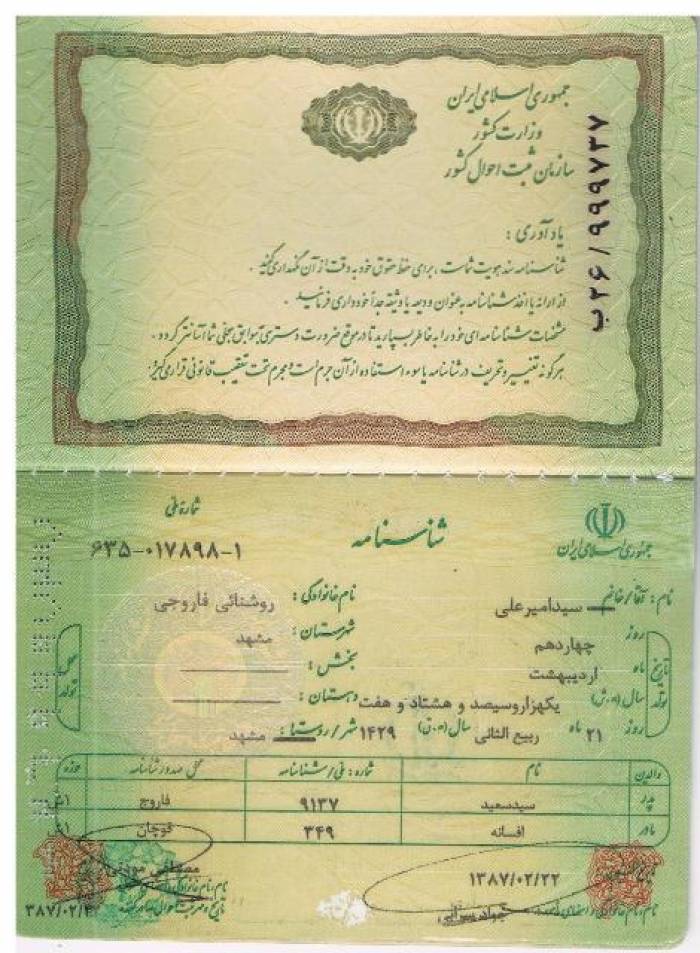 جمهوری اسلامی ایران
وزارت کشور
سازمان ثبت احوال کشور
ب۲۶/۹۹۹۷۳۷
یادآوری :
شناسنامه سند هویت شماست ، برای حفظ حقوق خود به دقت از آن نگهداری کنید .
از ارائه یا اخذ شناسنامه به عنوان ودیعه یا وثیقه جداً خودداری فرمائید .
مشخصات شناسنامه ای خود را به خاطر بسپارید تا در موقع ضرورت دسترسی به سوابق سجلی شما آسانتر گردد .
هرگونه تغییر و تحریف در شناسنامه یا سوء استفاده از آن جرم است و مجرم تحت تعقیب قانونی قرار می گیرد .
جمهوری اسلامی ایران
شناسنامه
شماره ملی
۶۳۵-۰۱۷۸۹۸-۱
نام : آقا/خانم سیدامیرعلی
نام خانوادگی : روشنائی فاروجی
تاریخ تولد
روز چهاردهم
ماه اردیبهشت
سال (ه.ش) یکهزاروسیصد و هشتاد و هفت
روز ۲۱ ماه ربیع الثانی سال (ه.ق) ۱۴۲۹
محل تولد
شهرستان : مشهد
بخش :
دهستان :
شهر/روستا : مشهد
والدین نام شماره : ملی/شناسنامه محل صدور شناسنامه حوزه
پدر سیدسعید ۹۱۳۷ فاروج
مادر افسانه ۳۴۹ قوچان
۱۳۸۷/۰۲/۲۲